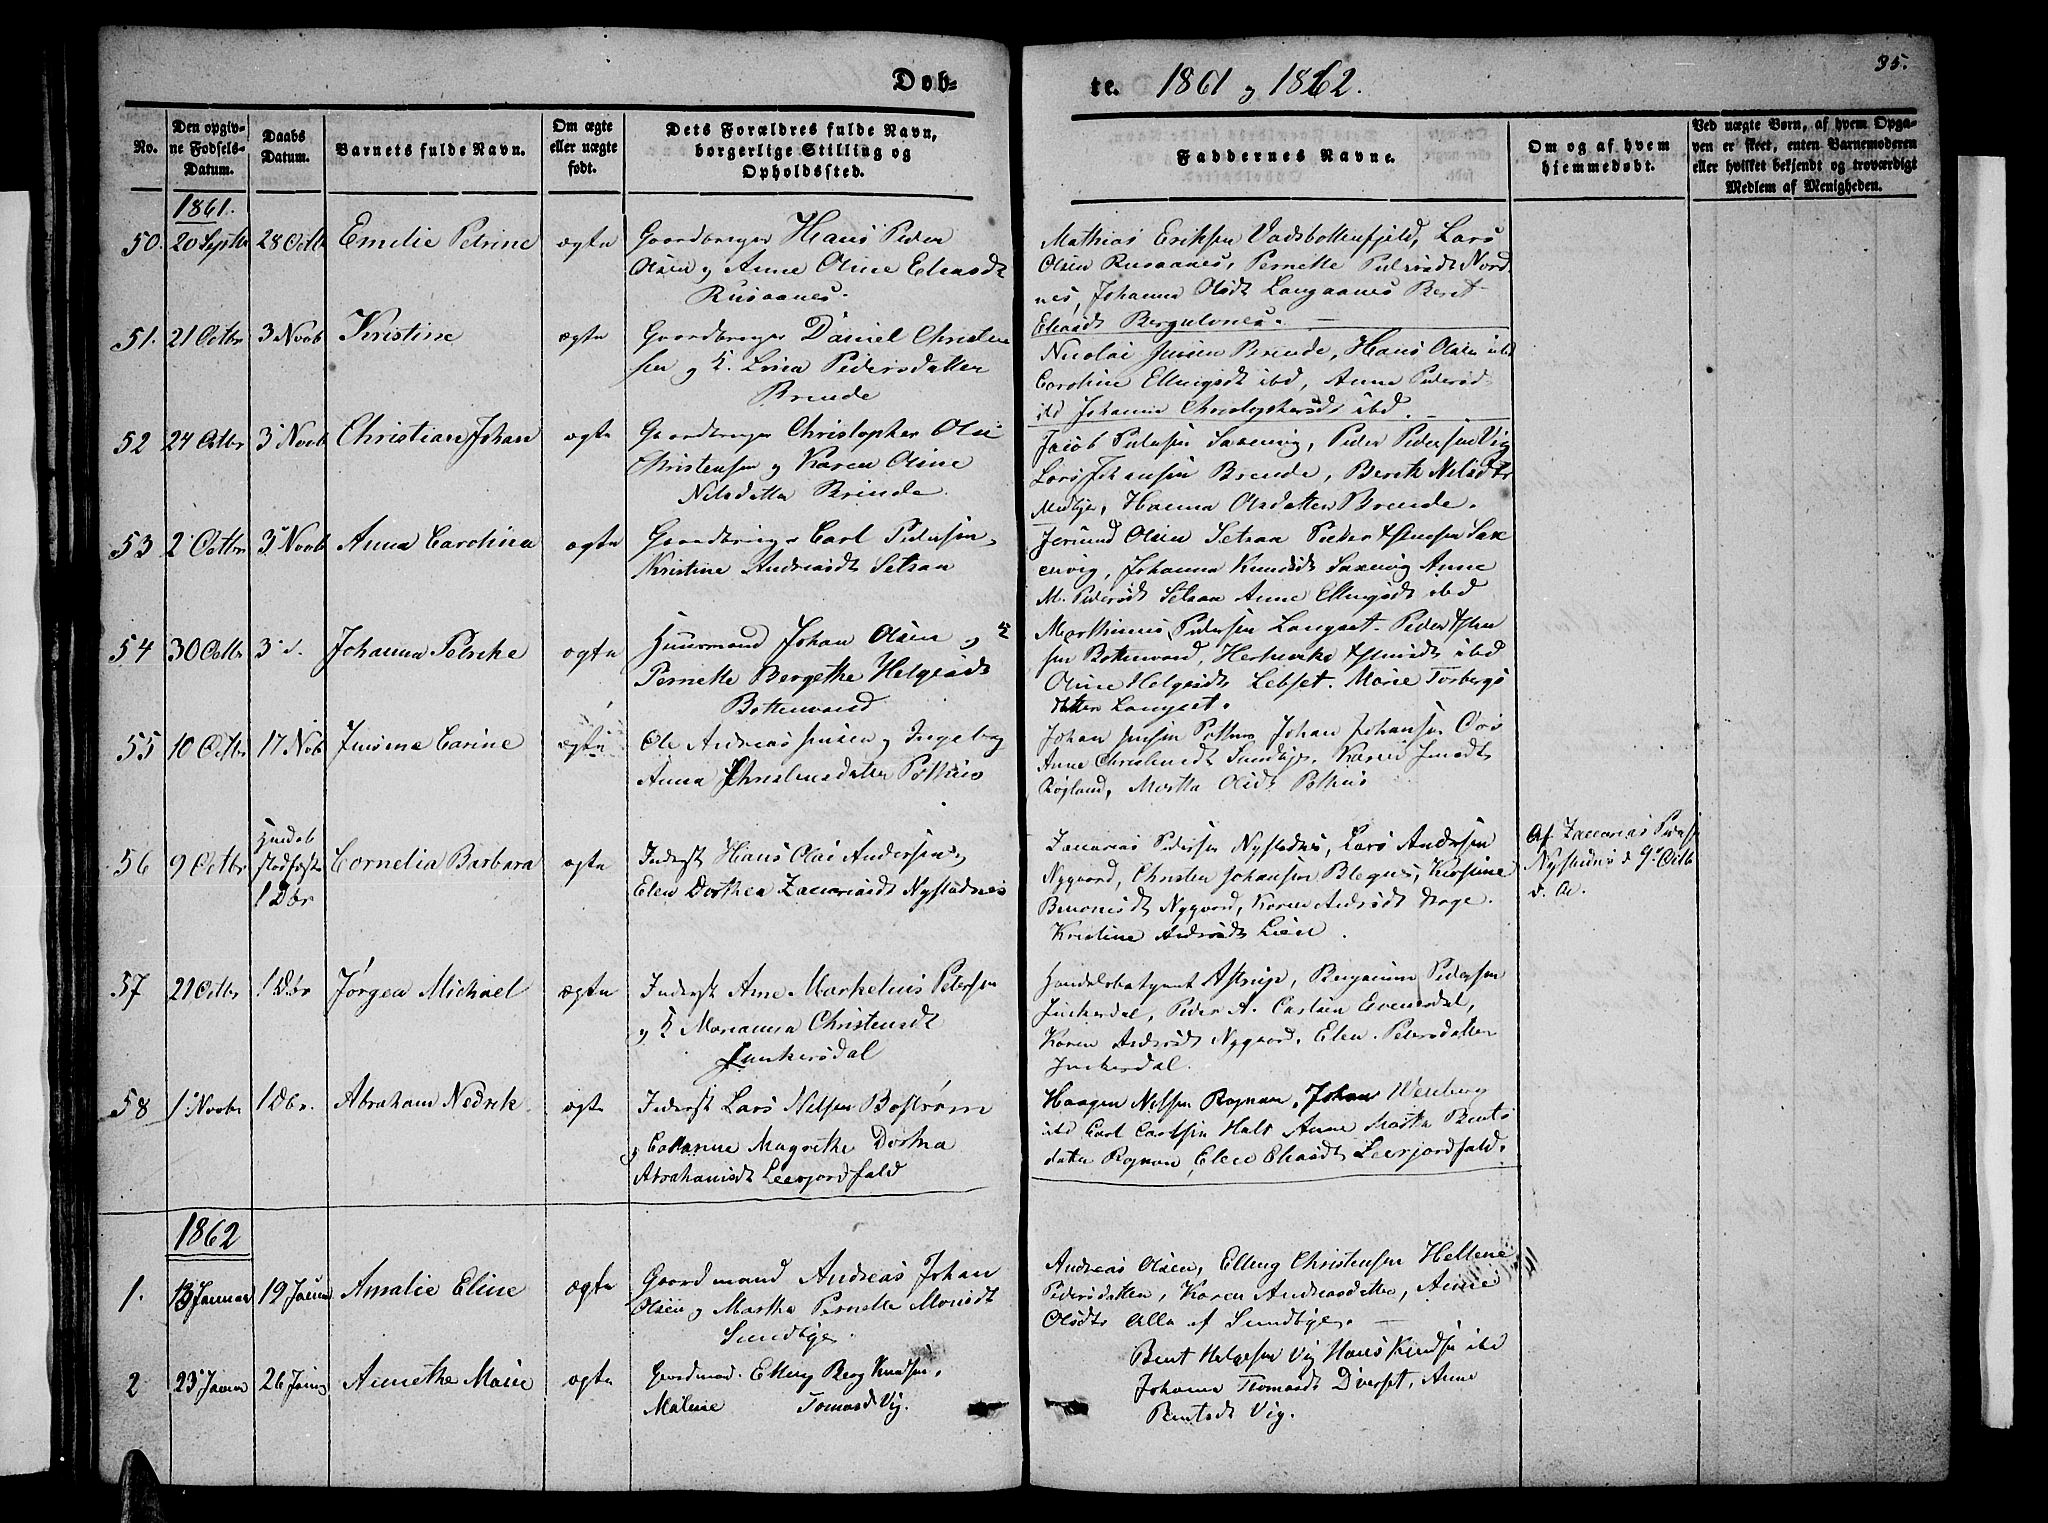 Døb-
te. 1861 og 1862.
35.
No.
Den opgiv-
ne Fødsels-
Datum.
Daabs
Datum.
Barnets fulde Navn.
Om ægte
eller uægte
født.
Dets Forældres fulde Navn,
borgerlige Stilling og
Opholdssted.
Faddernes Navne.
Om og af hvem
hjemmedøbt.
Ved uægte Børn, af hvem Opga-
ven er skeet, enten Barnemoderen
eller hvilket bekjendt og troværdigt
Medlem af Menigheden.
1861.
50. 20 Septbr 28 Octbr Emilie Petrine ægte
Gaardbruger Hans Peder
Olsen og Anne Oline Eliasdt
Rusaanes.
Mathias Eriksen Vadsbottenfjeld, Lars
Olsen Rusaanes, Pernelle Pedersdt Nord
nes, Johanna Olsdt Langaanes Beret
Eliasdt Bergulvnes.
51. 21 Octbr 3 Novb Kristine ægte
Gaardbruger Daniel Christen
sen og K. Lina Pedersdatter
Brende
Nicolai Jensen Brende, Hans Olsen ibd
Caroline Ellingsdt ibd, Anne Pedersd
ibd Johanna Christophersdt ibd.
52 24 Octbr 3 Novb Christian Johan ægte
Gaardbruger Christopher Olai
Christensen og Karen Oline
Nilsdatter Brende.
Jacob Pedersen Saxenvig, Peder Pedersen Vig
Lars Johansen Brende, Berith Nilsdtr
Medbye, Hanna Olsdatter Brende.
53 2 Octbr 3 Novb Anna Carolina ægte
Gaardbruger Carl Pedersen,
Kristine Andreasdt Setsaa
Jermund Olsen Setsaa Peder Estensen Sax
envig, Johanna Knudsdt Saxenvig Anne
M. Pedersdt Setsaa Anne Ellingsdt ibd
54 30 Octbr 3 d. Johanna Petrike ægte
Huusmand Johan Olsen og K
Pernelle Bergethe Helgesdt
Bottenvand
Marthinus Pedersen Langset. Peder Esten
sen Bottenvand, Estensdt ibd
Oline Helgesdt Lebset. Marie Torbergs
datter Langset.
55 10 Octbr 17 Nob Carine ægte
Ole Andreas Jensen og Ingeborg
Anna Christensdatter Pothus
Johan Jensen Pothus Johan Johansen
Anne Christensdt Sundbye, Karen Jensdt
Røgland, Martha Olsdt Pothus
56 9 Octbr 1 Dbr Cornelia Barbara ægte
Inderst Hans Olai Andersen og
Elen Dorthea Zacariasdt Nystadnes
Zacarias Pedersen Nystadnes, Lars Andersen
Nygaard, Christen Johansen Kirstine
Benonisdt Nygaard, Karen Andersdt Hage.
Kristine Andersdt Lien.
Af Zaccarias Peders
Nystadnes d 9 Octb
57 21 Octbr 1 Dbr Jørgen Michael ægte
Inderst Arne Markelius Petersen
og K Marianna Christensdt
Junkersdal
Handelsbetjent Astrup, Benjamin Pedersen
Junkerdal, Peder A. Carlsen Evensdal,
Karen Andersdt Nygaard, Elen Petersdatter
Junkerdal.
58 1 Novbr 1 Dbr. Abraham Nedrik ægte
Inderst Lars Nilsen Bostrøm
og Catarine Magrethe Dorthea
Abrahamsdt Leerjordfald
Haagen Nilsen Rognan, Johan Wenberg
ibd Carl Carlsen Hals Anne Martha Bents
datter Rognan Elen Eliasdt Leerjordfald.
1862
1. 13 Januar 19 Januar Amalie Eline ægte
Gaardmand Andreas Johan
Olsen og Martha Pernelle Monsdt
Sundbye.
Andreas Olsen, Elling Christensen Hellene
Pedersdatter, Karen Andreasdatter, Anne
Olsdtr Alle af Sundbye.
2 23 Januar 26 Januar Annethe Marie ægte
Gaardmand. Elling Berg Knudsen,
Malene Tomasdt Vig.
Bent Helgesen Vig Hans Knudsen ibd
Johanna Thomasdt Dverset, Anne
Bentsdt Vig.